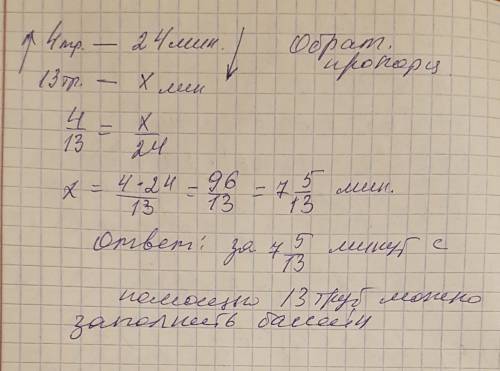 4тр. — 24 мин.
Обрат. пропорц.
13тр. — x мин
4/13 = x/24
x = 4·24/13 = 96/13 = 7 5/13 мин.
Ответ: за 7 5/13 минут с
помощью 13 труб можно
заполнить бассейн